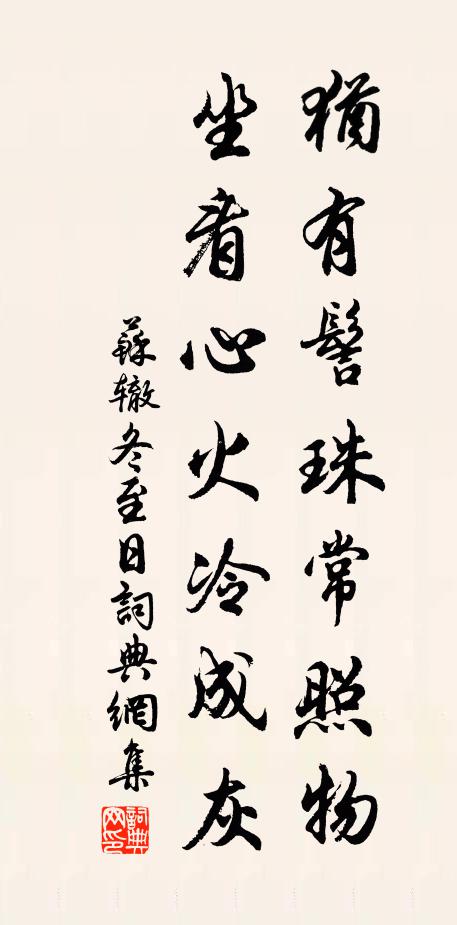 猶有髻珠常照物
坐看心火冷成灰
蘇轍冬至日詞典網集
詞典網印